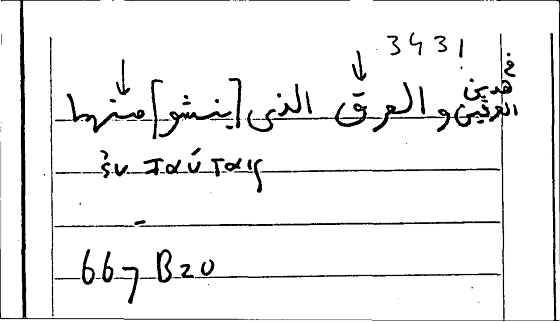 3431
في هذين العرقين والعرق الذي [ينشو] منهما
ἐν ταύταις
667 B20